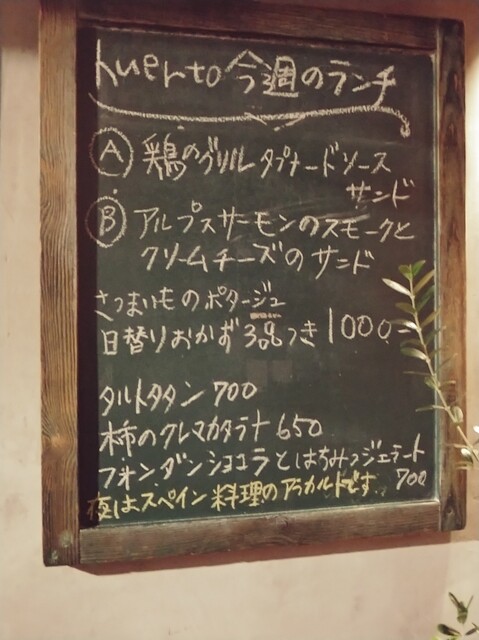 huerto 今週のランチ
Ⓐ 鶏のグリル タプナードソース
サンド
Ⓑ アルプスサーモンのスモークと
クリームチーズのサンド
さつまいものポタージュ
日替りおかず3品つき 1000-
タルトタタン 700
柿のクレマカタラナ 650
フォンダンショコラとはちみつジェラート
700
夜はスペイン料理のアラカルトです